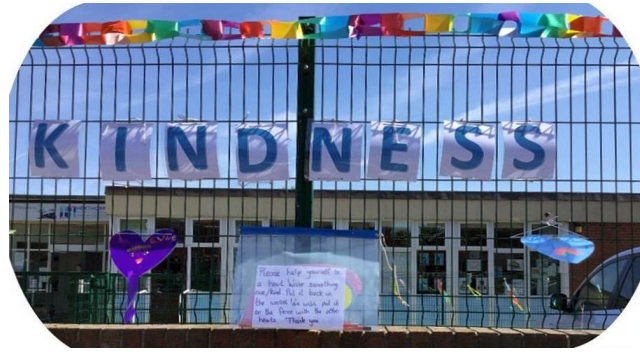 KINDNESS
Please help yourself to
a heart. Write something
nice/kind. Put it back in
the wallet. We will put it
on the fence with the other
hearts. Thank you